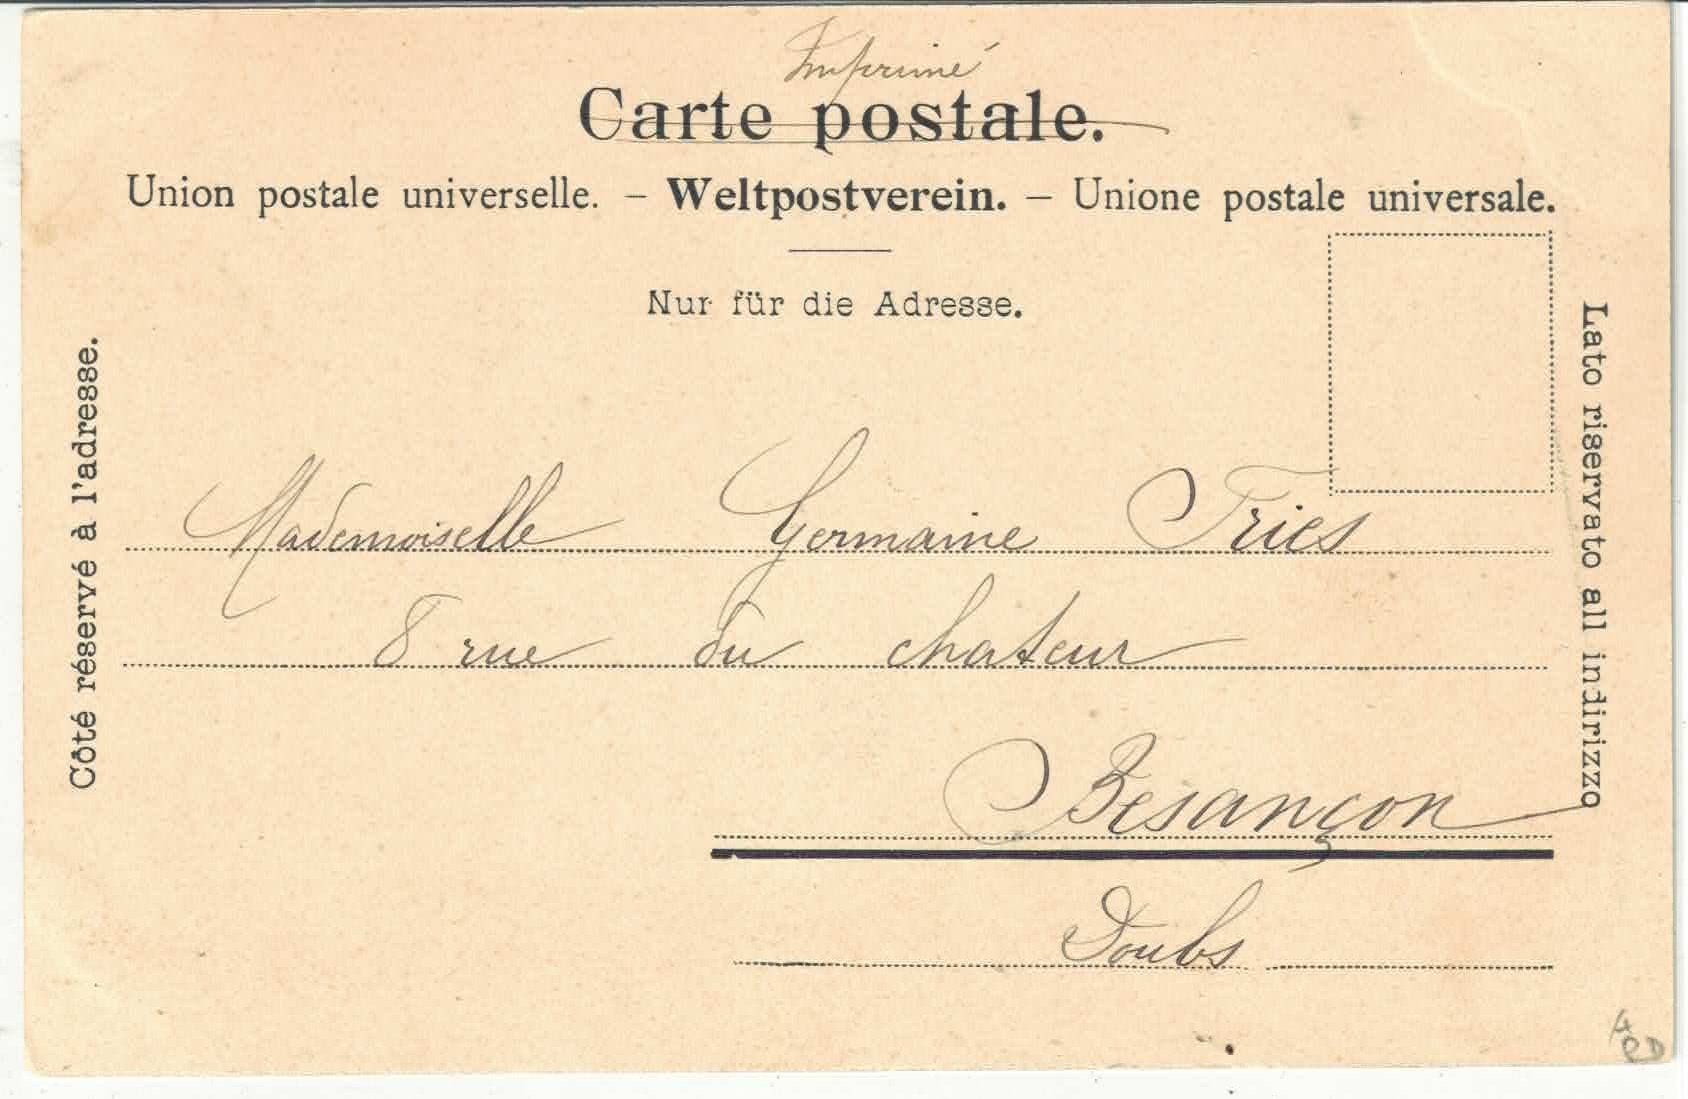 Imprimé
Carte postale.
Union postale universelle. – Weltpostverein. – Unione postale universale.
Nur für die Adresse.
Côté réservé à l'adresse.
Lato riservato all indirizzo
Mademoiselle Germaine Fries
8 rue du chateur
Besançon
Doubs